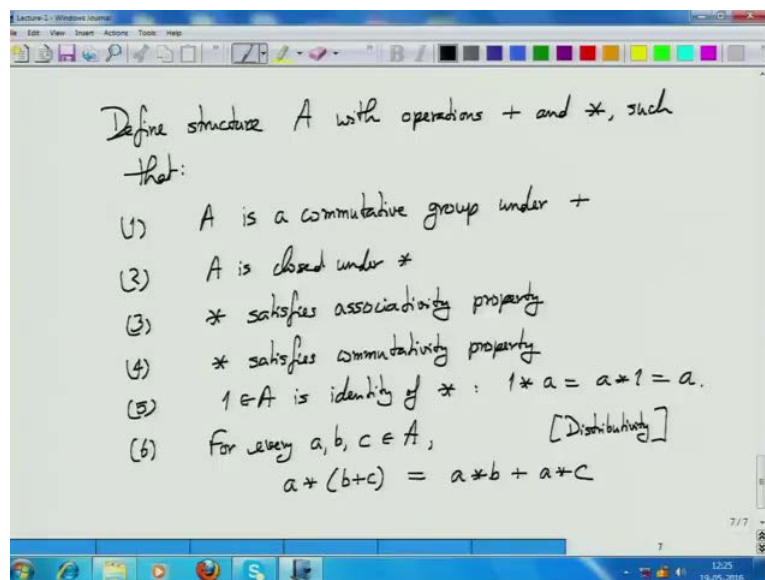 Lecture-1 - Windows Journal
File Edit View Insert Actions Tools Help
Define structure A with operations + and *, such
that:
(1) A is a commutative group under +
(2) A is closed under *
(3) * satisfies associativity property
(4) * satisfies commutativity property
(5) 1 ∈ A is identity of * : 1 * a = a * 1 = a.
(6) For every a, b, c ∈ A, [Distributivity]
a * (b+c) = a * b + a * c
7/7
7
12:25
19-05-2016